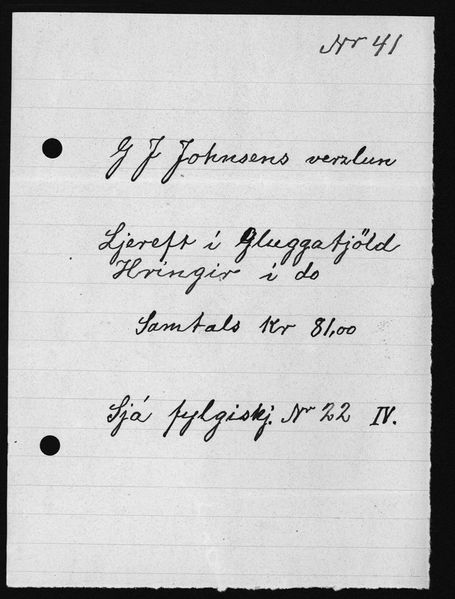 Nr 41
G J Johnsens verzlun
Ljereft i Gluggatjöld
Hringir i do
Samtals Kr 81,00
Sjá fylgiskj. Nr 22 IV.